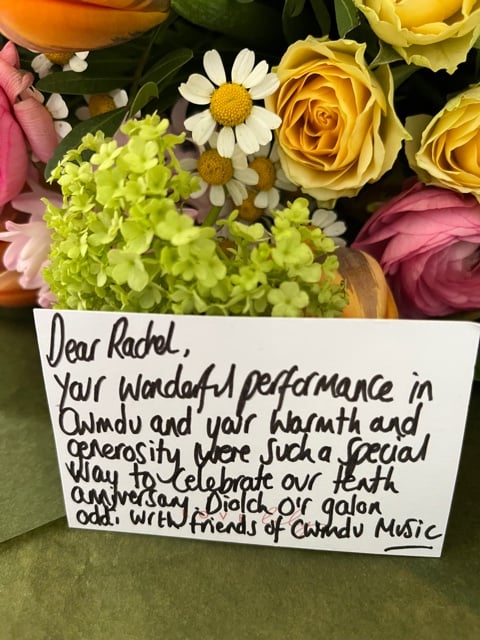 Dear Rachel,
Your wonderful performance in
Cwmdu and your warmth and
generosity were such a special
way to celebrate our tenth
anniversary. Diolch o'r galon
oddi wrth friends of Cwmdu Music